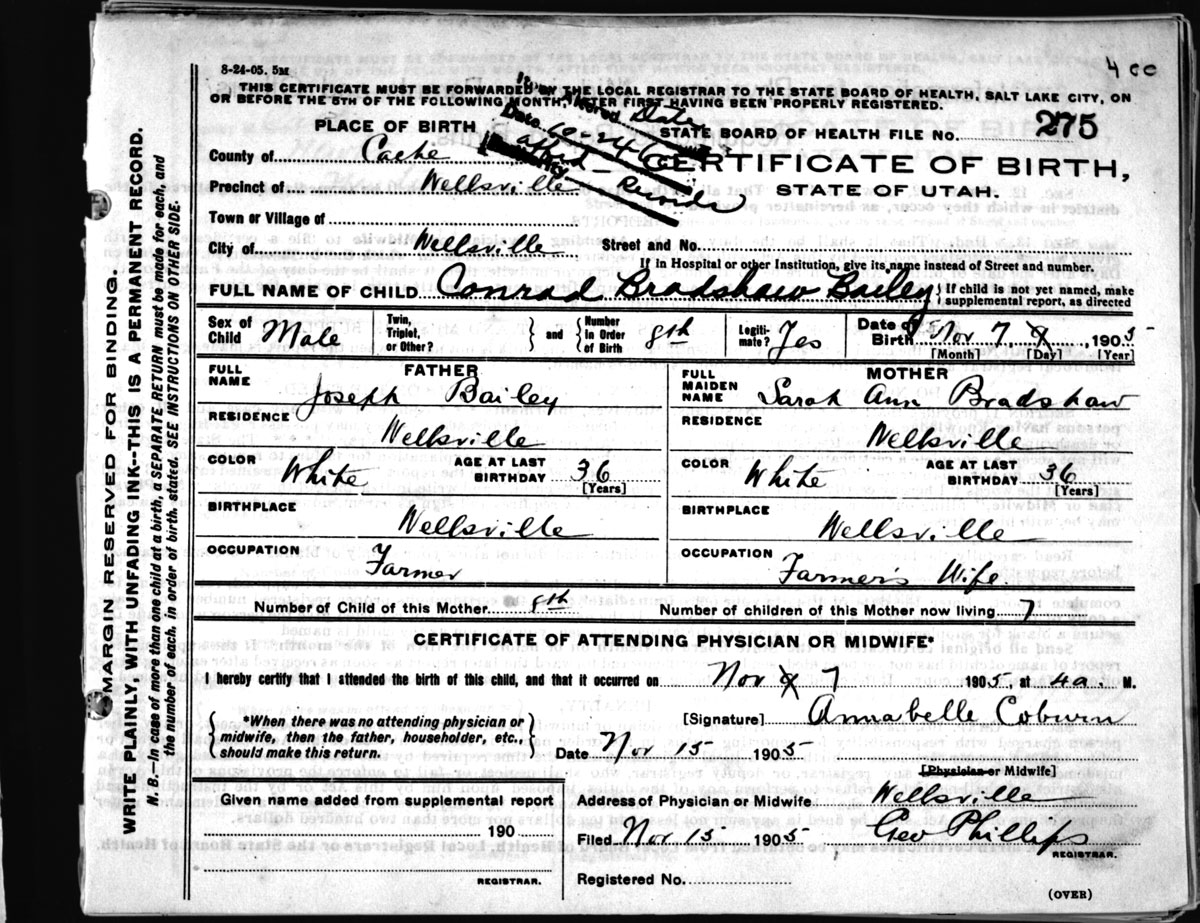 8-24-05. 5M
4 00
THIS CERTIFICATE MUST BE FORWARDED BY THE LOCAL REGISTRAR TO THE STATE BOARD OF HEALTH, SALT LAKE CITY, ON
OR BEFORE THE 5TH OF THE FOLLOWING MONTH, AFTER FIRST HAVING BEEN PROPERLY REGISTERED.
PLACE OF BIRTH
Date
Date
STATE BOARD OF HEALTH FILE NO. 275
County of Cache
CERTIFICATE OF BIRTH,
STATE OF UTAH.
Precinct of Wellsville
Town or Village of
City of Wellsville Street and No.
If in Hospital or other Institution, give its name instead of Street and number.
FULL NAME OF CHILD Conrad Bradshaw Bailey { If child is not yet named, make supplemental report, as directed
Sex of Child Male Twin, Triplet, or Other? } and { Number in Order of Birth 8th Legitimate? Yes Date of Birth Nov 7, 1905
[Month] [Day] [Year]
FATHER
FULL NAME Joseph Bailey
RESIDENCE
Wellsville
COLOR White AGE AT LAST BIRTHDAY 36
[Years]
BIRTHPLACE
Wellsville
OCCUPATION
Farmer
MOTHER
FULL MAIDEN NAME Sarah Ann Bradshaw
RESIDENCE
Wellsville
COLOR White AGE AT LAST BIRTHDAY 36
[Years]
BIRTHPLACE
Wellsville
OCCUPATION
Farmer's Wife.
Number of Child of this Mother 8th Number of children of this Mother now living 7
CERTIFICATE OF ATTENDING PHYSICIAN OR MIDWIFE*
I hereby certify that I attended the birth of this child, and that it occurred on Nov 7 1905, at 4 a. M.
{ *When there was no attending physician or midwife, then the father, householder, etc., should make this return. }
[Signature] Annabelle
Date Nov 15 1905
[Physician or Midwife]
Given name added from supplemental report
190
REGISTRAR.
Address of Physician or Midwife Wellsville
Filed Nov 15 1905 Geo Phillips
REGISTRAR.
Registered No.
(OVER)
MARGIN RESERVED FOR BINDING.
WRITE PLAINLY, WITH UNFADING INK--THIS IS A PERMANENT RECORD.
N. B.—In case of more than one child at a birth, a SEPARATE RETURN must be made for each, and
the number of each, in order of birth, stated. SEE INSTRUCTIONS ON OTHER SIDE.